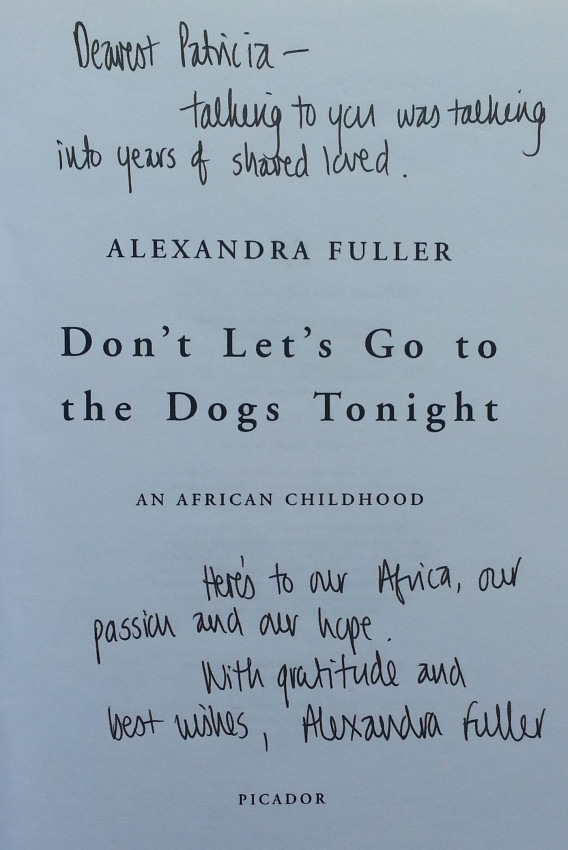 Dearest Patricia —
talking to you was talking
into years of shared loved.
ALEXANDRA FULLER
Don't Let's Go to
the Dogs Tonight
AN AFRICAN CHILDHOOD
Here's to our Africa, our
passion and our hope.
With gratitude and
best wishes, Alexandra Fuller
PICADOR